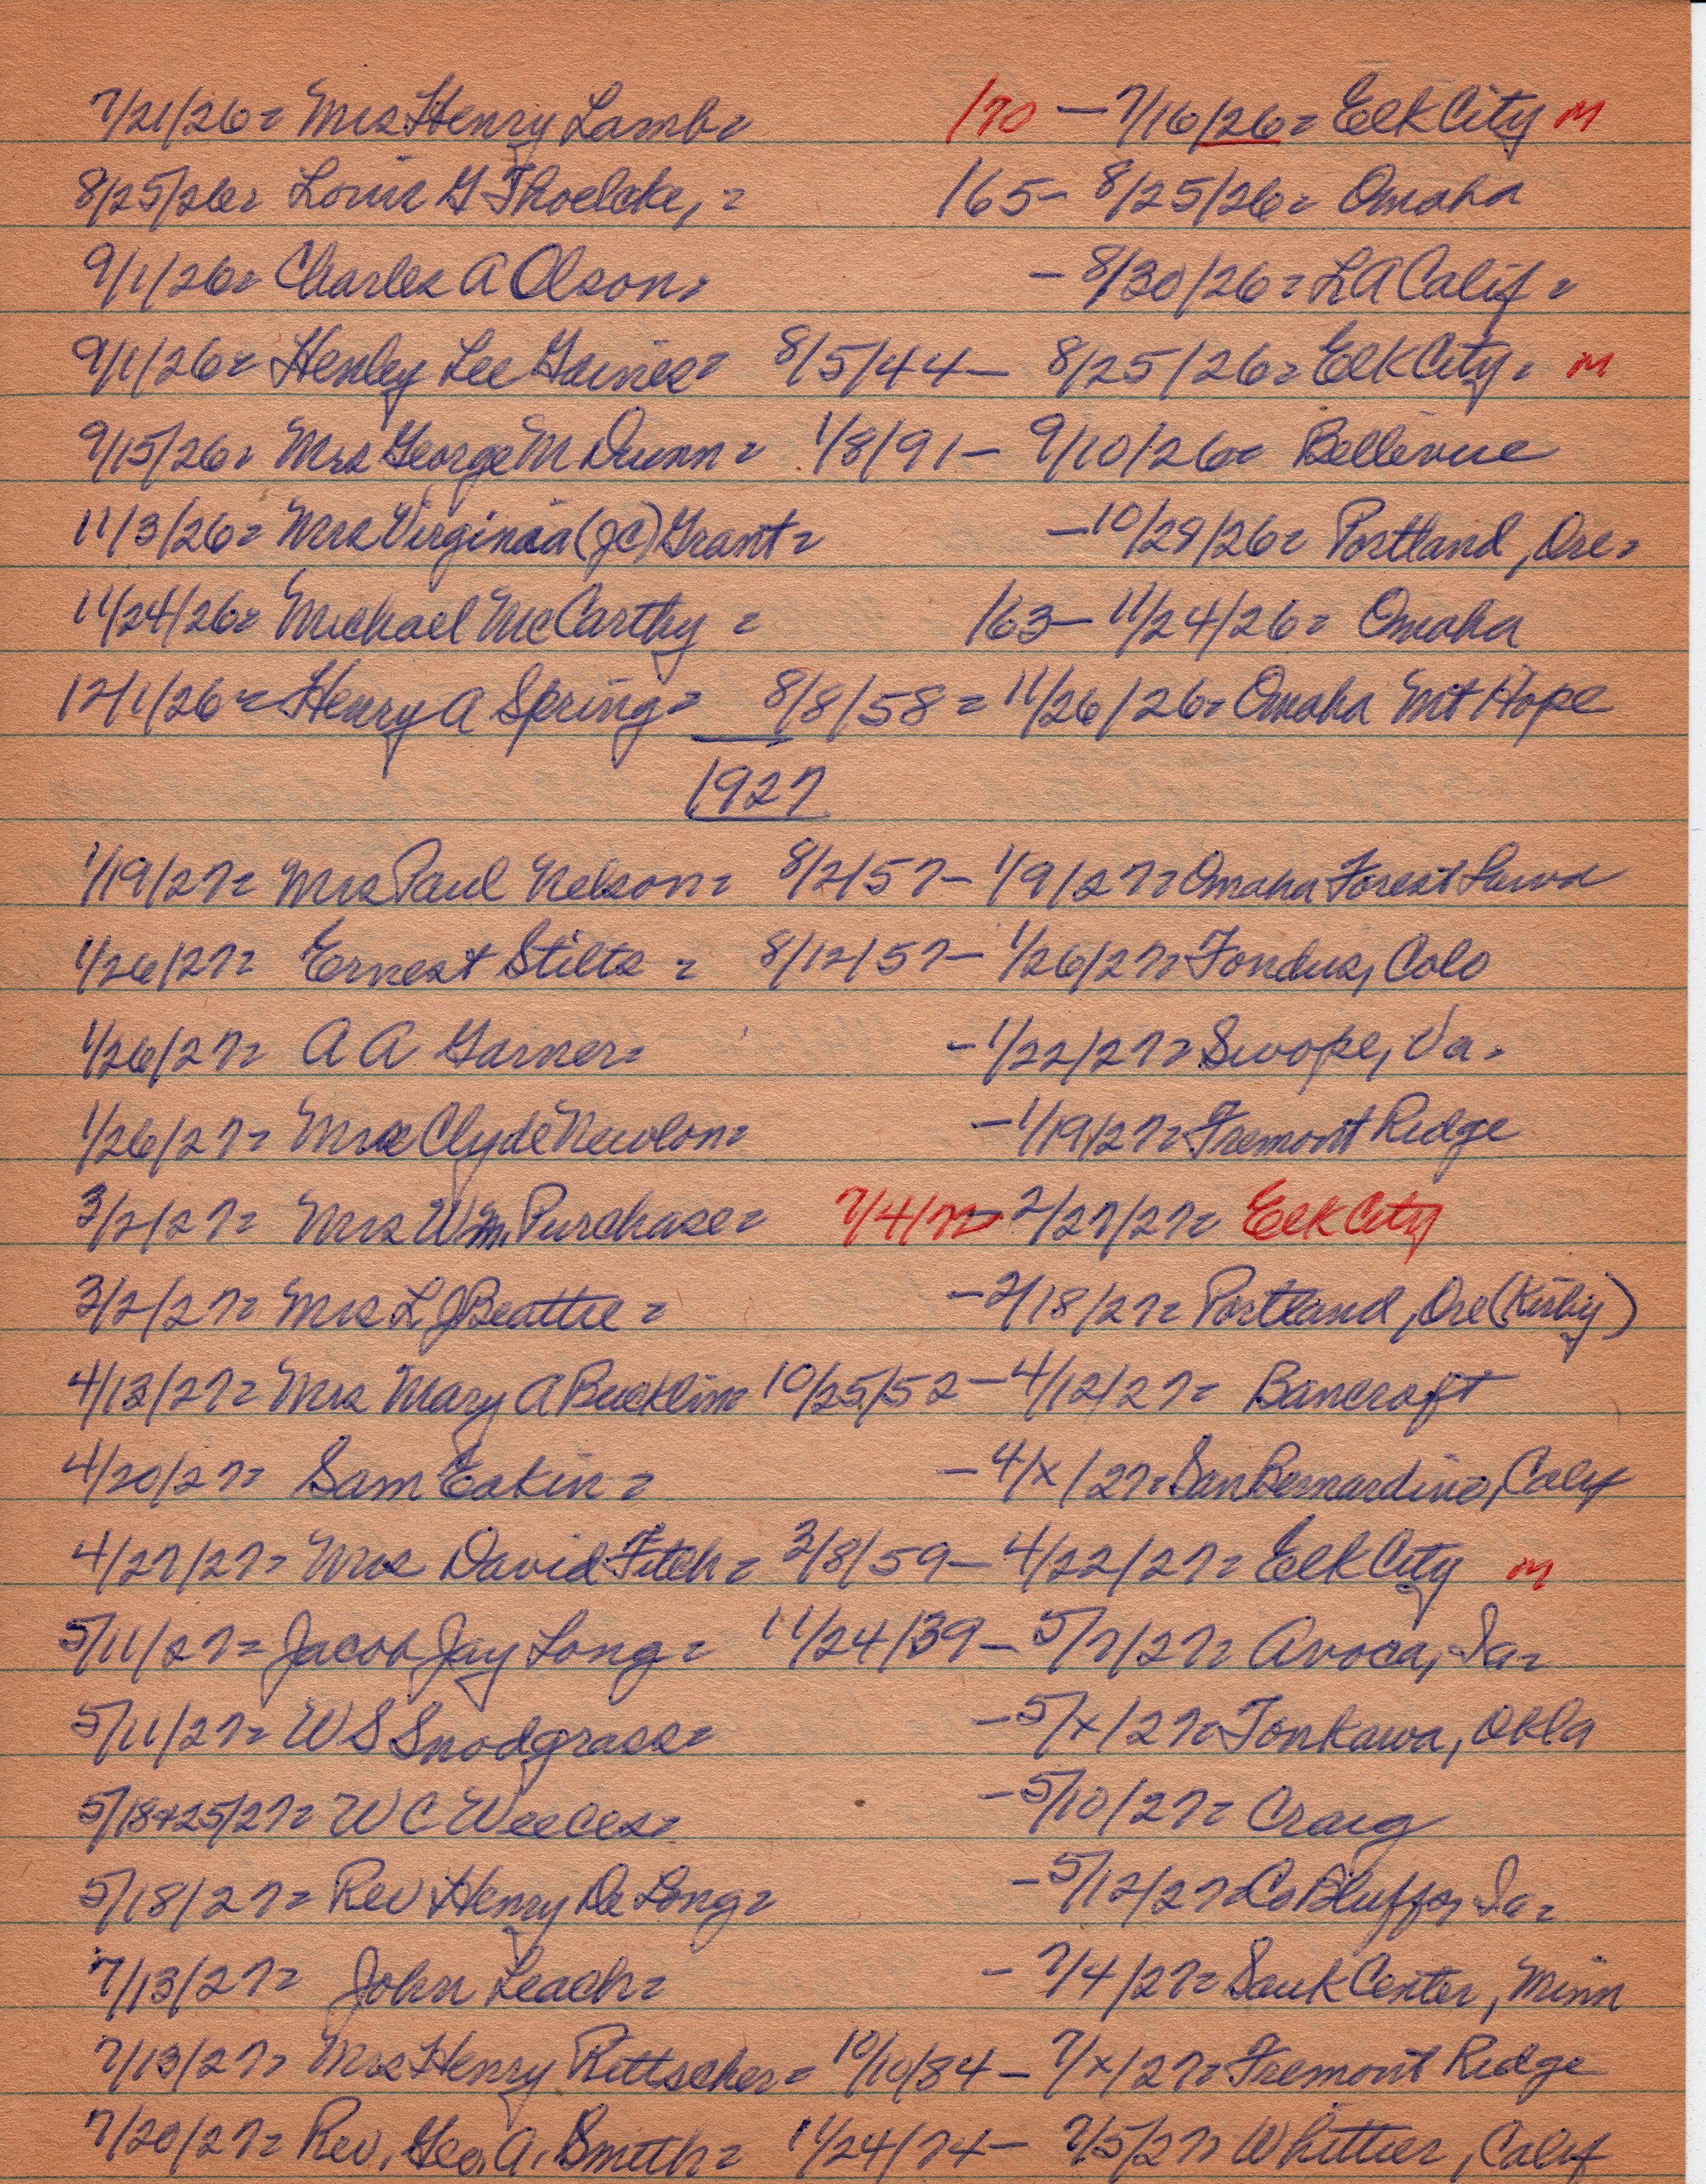 7/21/26= Mrs Henry Lamb= /70 - 7/16/26= Elk City M
8/25/26= Louie G Thoelcke, = /65- 8/25/26= Omaha
9/1/26= Charles A Olson= - 8/30/26= LA Calif =
9/1/26= Henley Lee Gaines= 8/5/44- 8/25/26= Elk City= M
9/15/26= Mrs George M Dunn= 1/8/91- 9/10/26= Bellevue
11/3/26= Mrs Virginia (JC) Grant= -10/29/26= Portland, Ore=
11/24/26= Michael McCarthy = /63- 11/24/26= Omaha
12/1/26= Henry A Spring= 8/8/58= 11/26/26= Omaha Mt Hope
1927
1/19/27= Mrs Paul Nelson= 8/2/57- 1/9/27= Omaha Forest Lawn
1/26/27= Ernest Stilts = 8/12/57- 1/26/27= Fondus, Colo
1/26/27= A A Garner= -1/22/27= Swope, Va=
1/26/27= Mrs Clyde Newlon= -1/19/27= Fremont Ridge
3/2/27= Mrs Wm. Purchase= 7/4/72- 2/27/27= Elk City
3/2/27= Mrs L J Beattie= -2/18/27= Portland, Ore (Kirby)
4/13/27= Mrs Mary A Bucklin= 10/25/52-4/12/27= Bancroft
4/20/27= Sam Eakin= -4/x/27= San Bernardino, Calif
4/27/27= Mrs David Fitch= 3/8/59- 4/22/27= Elk City M
5/11/27= Jacob Jay Long= 11/24/39- 5/7/27= Avoca, Ia=
5/11/27= W S Snodgrass= -5/x/27= Tonkawa, Okla
5/18+25/27= W C Weeces= -5/10/27= Craig
5/18/27= Rev Henry De Long= -5/12/27= Co Bluffs, Ia=
7/13/27= John Leach= - 7/4/27= Sauk Center, Minn
7/13/27= Mrs Henry Rettscher= 10/10/84- 7/x/27= Fremont Ridge
7/20/27= Rev. Geo. A. Smith= 11/24/74- 7/5/27= Whittier, Calif